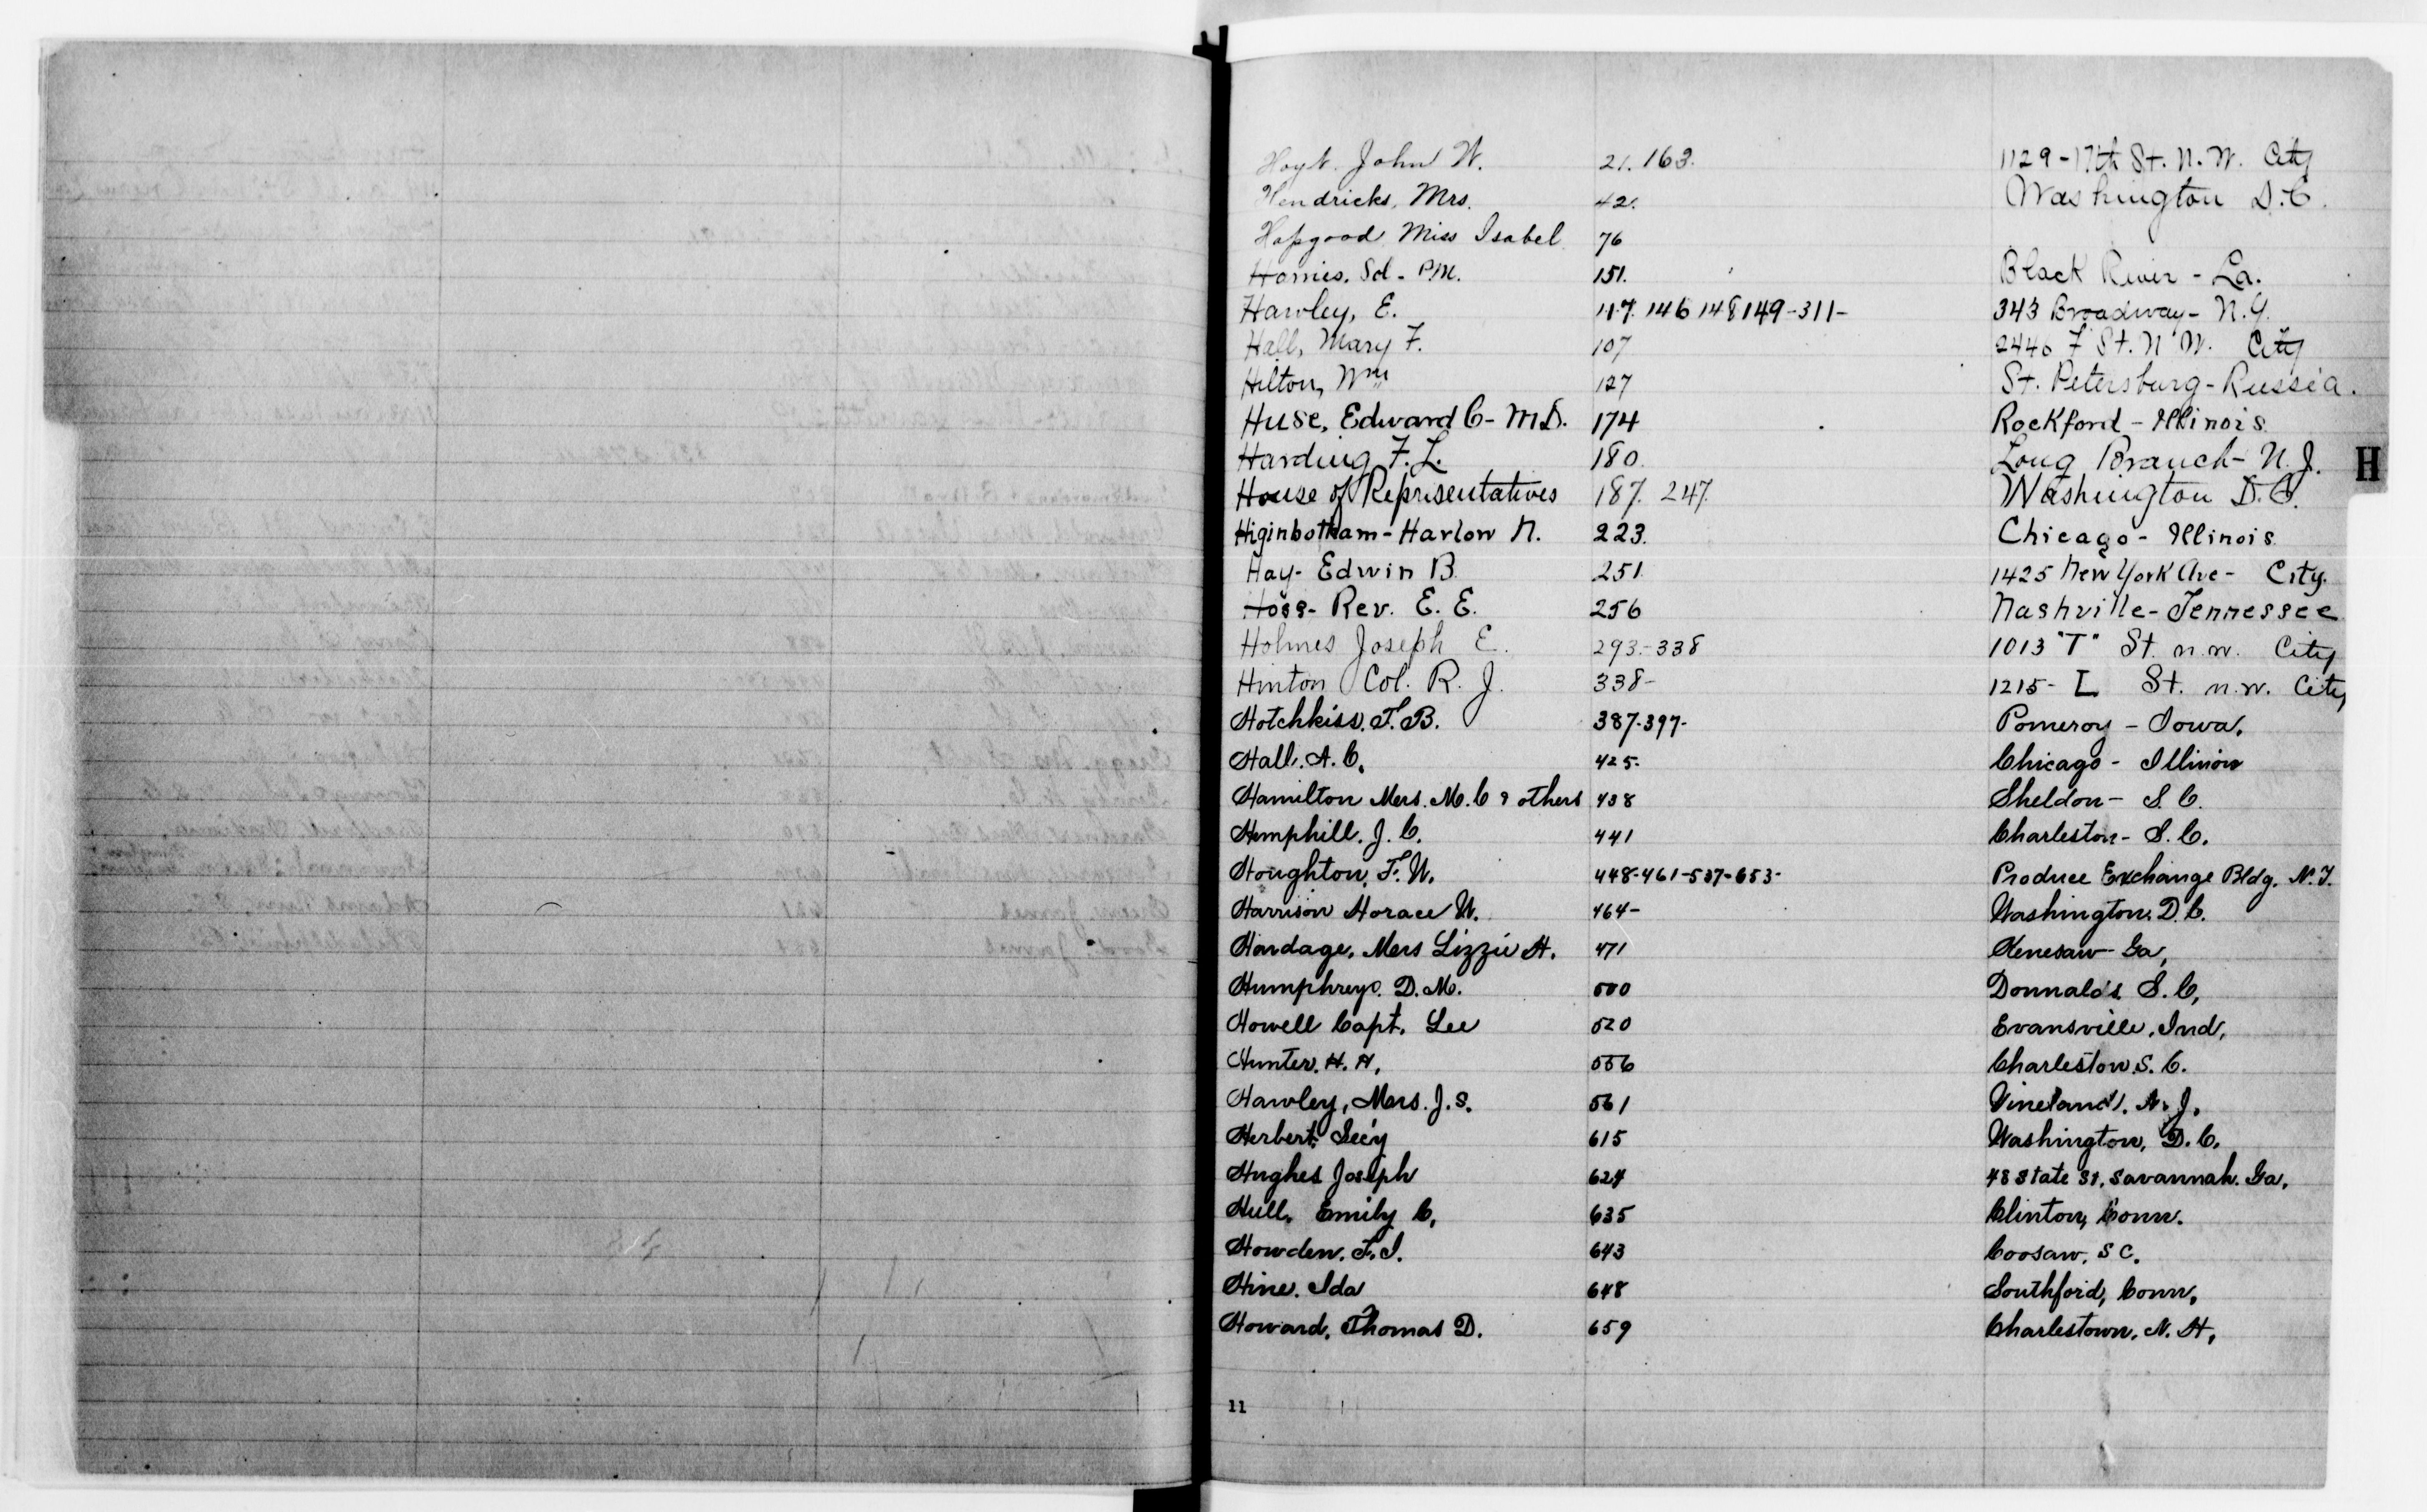 Hoyt. John W. 21. 163. 1129-17th St. N.W. City
Hendricks, Mrs. 42. Washington D.C.
Hapgood Miss Isabel 76
Harries. Sd- P.M. 151. Black River - La.
Hawley, E. 117. 146 148 149-311- 343 Broadway- N.Y.
Hall, Mary F. 107 2440 F St. N.W. City
Hilton, Wm 127 St. Petersburg-Russia.
Huse, Edward C- M.D. 174 Rockford - Illinois
Harding F. L. 180. Long Branch- N.J.
H
House of Representatives 187. 247. Washington D.C.
Higinbotham-Harlow N. 223. Chicago- Illinois
Hay- Edwin B. 251. 1425 New York Ave- City.
Hoss- Rev. E. E. 256 Nashville-Tennessee
Holmes Joseph E. 293.-338 1013 "T" St. n.w. City
Hinton Col. R. J. 338- 1215- L St. n.w. City
Hotchkiss. F. B. 387-397- Pomeroy - Iowa.
Hall. A. C. 425. Chicago - Illinois
Hamilton Mrs. M. C & others 438 Sheldon- S.C.
Hemphill. J. C. 441 Charleston- S.C.
Houghton, F. W. 448-461-537-653- Produce Exchange Bldg. N.Y.
Harrison Horace W. 464- Washington. D.C.
Hardage, Mrs Lizzie H. 471 Kenesaw- Ga,
Humphreys. D. M. 500 Donnalds. S.C,
Howell Capt. Lee 520 Evansville, Ind,
Hunter. H. H, 556 Charleston. S. C.
Hawley, Mrs. J. S. 561 Vineland, N. J.
Herbert, Sec'y 615 Washington, D.C.
Hughes Joseph 624 48 State St, Savannah. Ga.
Hull, Emily C, 635 Clinton, Conn.
Howden. F. I. 643 Coosaw, S C.
Hine. Ida 648 Southford, Conn,
Howard, Thomas D. 659 Charlestown. N. H,
11